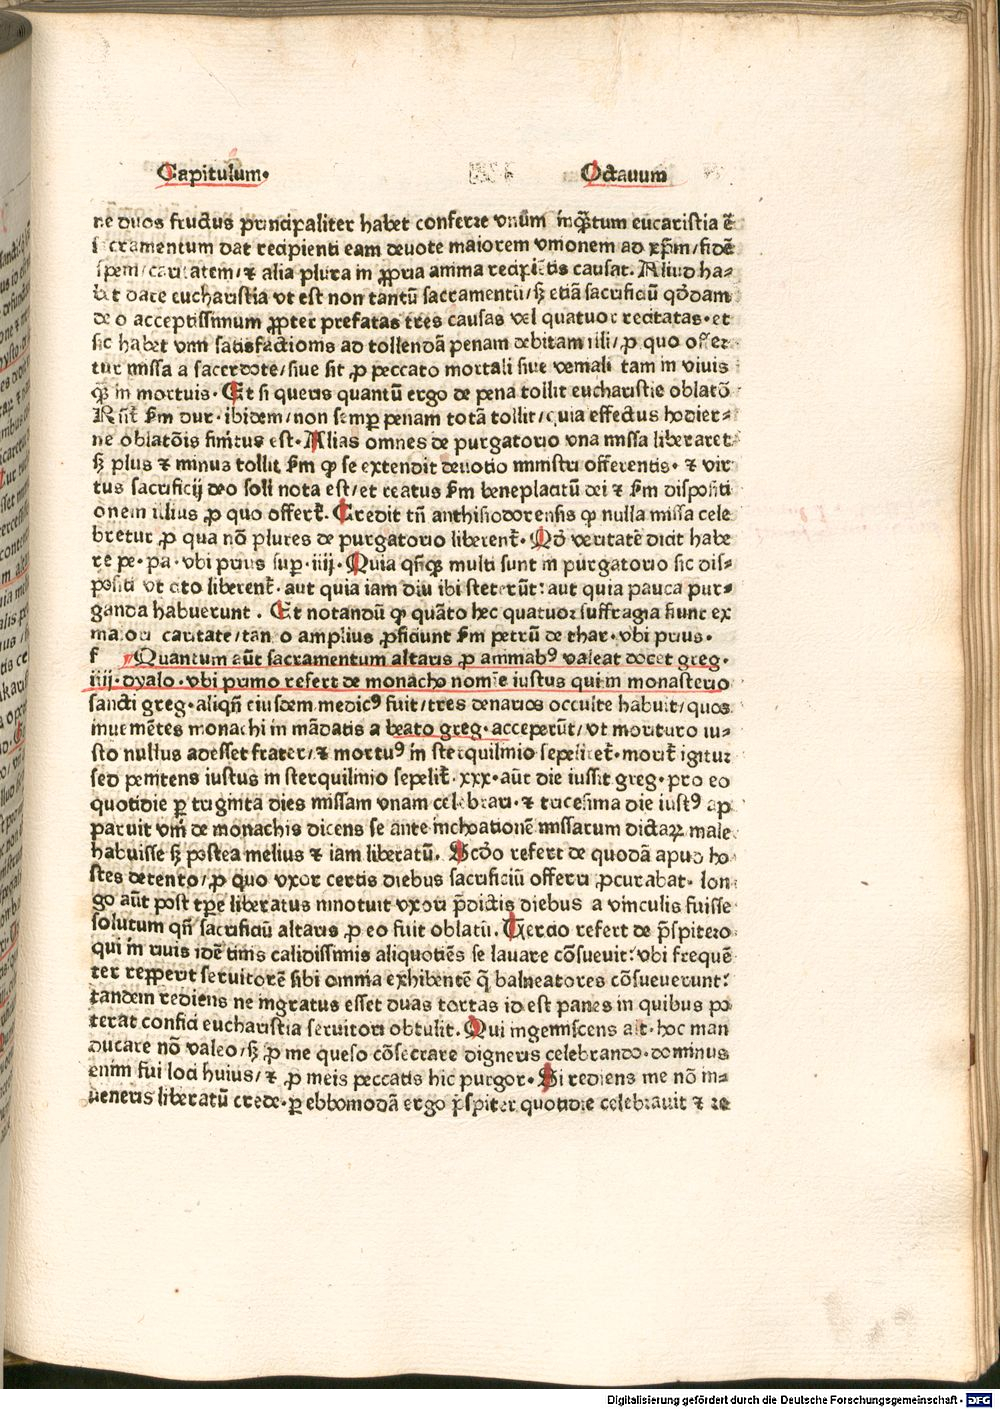 Capitulum. Octauum
ne duos fructus principaliter habet conferre vnum inq̃tum eucaristia ē
sacramentum dat recipienti eam deuote maiorem vnionem ad xp̄m/fidē
spem/caritatem/⁊ alia plura in ꝓpria anima recipiētis causat. Aliud ha⸗
bet dare eucharistia vt est non tantū sacramentū/sꝫ etiā sacrificiū qd̄dam
deo acceptissimum ꝓpter prefatas tres causas vel quatuor recitatas·et
sic habet vim satisfactionis ad tollendā penam debitam illi/ꝓ quo offer⸗
tur missa a sacerdote/siue sit ꝓ peccato mortali siue veniali tam in viuis
q̃ in mortuis·Et si queris quantū ergo de pena tollit eucharistie oblatō
Rn̄t fm dur·ibidem/non semꝑ penam totā tollit/quia effectus hodier⸗
ne oblatōis finitus est·Alias omnes de purgatorio vna missa liberaret
sꝫ plus ⁊ minus tollit fm ꝙ se extendit deuotio ministri offerentis·⁊ vir
tus sacrificij deo soli nota est/et reatus fm beneplacitū dei ⁊ fm dispositi
onem illius ꝓ quo offert̄. Credit tn̄ anthisiodorensis ꝙ nulla missa cele
bretur ꝓ qua nō plures de purgatorio liberent̄·Qd̄ veritatē dicit habe
re pe·pa·vbi prius sup·iiij·Quia qn̄q̃ multi sunt in purgatorio sic dis⸗
positi vt cito liberent̄·aut quia iam diu ibi steterūt:aut quia pauca pur⸗
ganda habuerunt. Et notandū ꝙ quāto hec quatuor suffragia fiunt ex
maiori caritate/tanto amplius ꝓficiunt fm petrū de thar·vbi prius·
f Quantum aūt sacramentum altaris ꝓ animabꝰ valeat docet greg·
iiij·dyalo·vbi primo refert de monacho nomīe iustus qui in monasterio
sancti greg·aliqn̄ eiusdem medicꝰ fuit/tres denarios occulte habuit/quos
inuenientes monachi in mādatis a beato greg·acceperūt/vt morituro iu⸗
sto nullus adesset frater/⁊ mortuꝰ in sterquilinio sepeliret̄·morit̄ igitur
sed penitens iustus in sterquilinio sepelit̄·xxx·aūt die iussit greg·pro eo
quotidie ꝑ triginta dies missam vnam celebrari·⁊ tricesima die iustꝰ ap
paruit vni de monachis dicens se ante inchoationē missarum dictaꝝ male
habuisse sꝫ postea melius ⁊ iam liberatū. Scd̄o refert de quodā apud ho
stes detento/ꝓ quo vxor certis diebus sacrificiū offerri ꝓcurabat·lon
go aūt post tꝑe liberatus innotuit vxori p̄dictis diebus a vinculis fuisse
solutum qn̄ sacrificiū altaris ꝓ eo fuit oblatū. Tercio refert de p̄spitero
qui in riuis idē tinis calidissimis aliquotiēs se lauare cōsueuit:vbi frequē
ter repperit seruitorē sibi omnia exhibentē q̄ balneatores cōsueuerunt:
tandem rediens ne ingratus esset duas tortas id est panes in quibus po
terat confici eucharistia seruitori obtulit. Qui ingemiscens ait·hoc man
ducare nō valeo/sꝫ ꝓ me queso cōsecrare digneris celebrando·dominus
enim fui loci huius/⁊ ꝓ meis peccatis hic purgor·Si rediens me nō in⸗
ueneris liberatū crede·ꝑ ebbomodā ergo p̄spiter quotidie celebrauit ⁊ re
Digitalisierung gefördert durch die Deutsche Forschungsgemeinschaft - DFG